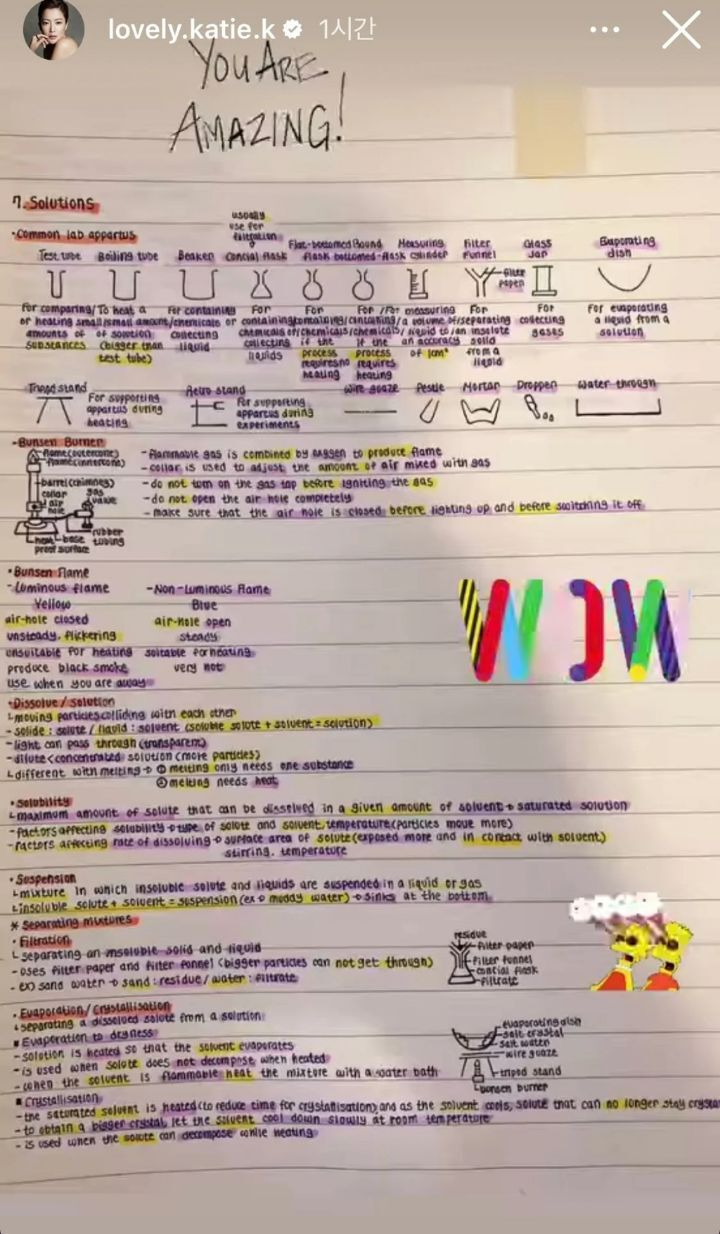 lovely.katie.k 1시간
YOU ARE
AMAZING!
7. Solutions
·Common lab appartus
usually
use for
filtration
Test tube Boiling tube Beaker Conical flask Flat-bottomed flask Round bottomed-flask Measuring cylinder Filter Funnel Glass Jar Evaporating dish
filter
paper
For comparing/ To heat a For containing For For For /For measuring For For For evaporating
or heating small/small amount/chemicals or containing/containing/containing/a volume of/separating collecting a liquid from a
amounts of of solution collecting chemicals of/chemicals/chemicals/liquid to/an insolute gases solution
substances (bigger than liquid collecting if the if the an accuracy solid
test tube) liquids process process of 1cm³ from a
requires no requires liquid
heating heating
Tripod stand Retro stand wire guaze Pestle Mortar Dropper Water through
For supporting For supporting
appartus during appartus during
heating experiments
·Bunsen Burner
flame(outercone)
flame(innercone)
barrel(chimney)
collar gas
air valve
hole
heat base rubber
proof surface tubing
-flammable gas is combined by oxygen to produce flame
-collar is used to adjust the amount of air mixed with gas
-do not turn on the gas tap before igniting the gas
-do not open the air hole completely
-make sure that the air hole is closed before lighting up and before switching it off
·Bunsen flame
-Luminous flame -Non-Luminous flame
Yellow Blue
air-hole closed air-hole open
unsteady, flickering steady
unsuitable for heating suitable for heating
produce black smoke very hot
use when you are away
WOW
·Dissolve / solution
└moving particles colliding with each other
-solide : solute / liquid : solvent (soluble solute + solvent = solution)
-light can pass through (transparent)
-dilute < concentrated solution (more particles)
└different with melting → ① melting only needs one substance
② melting needs heat
·Solubility
└maximum amount of solute that can be dissolved in a given amount of solvent → saturated solution
-factors affecting solubility → type of solute and solvent, temperature (particles move more)
-factors affecting rate of dissolving → surface area of solute (exposed more and in contact with solvent)
stirring, temperature
·Suspension
└mixture in which insoluble solute and liquids are suspended in a liquid or gas
└insoluble solute + solvent = suspension (ex → muddy water) → sinks at the bottom
* Separating mixtures
·Filtration
└separating an insoluble solid and liquid
-uses filter paper and filter funnel (bigger particles can not get through)
-ex) sand water → sand : residue / water : filtrate
residue
filter paper
filter funnel
conical flask
filtrate
·Evaporation / Crystallisation
└separating a dissolved solute from a solution
▪Evaporation to dryness
-solution is heated so that the solvent evaporates
-is used when solute does not decompose when heated
-when the solvent is flammable heat the mixture with a water bath
evaporating dish
salt crystal
salt water
wire guaze
tripod stand
bunsen burner
▪Crystallisation
-the saturated solvent is heated (to reduce time for crystallisation) and as the solvent cools, solute that can no longer stay crysta
-to obtain a bigger crystal, let the solvent cool down slowly at room temperature
-is used when the solute can decompose while heating